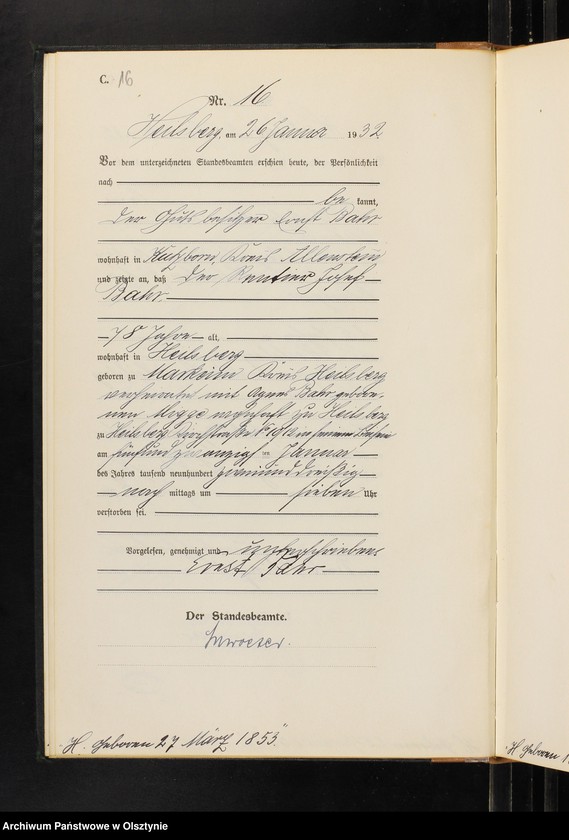 C. 16
Nr. 16
Heilsberg, am 26 Januar 1932
Vor dem unterzeichneten Standesbeamten erschien heute, der Persönlichkeit
nach
be kannt,
der Gutsbesitzer Ernst Bahr
wohnhaft in Kreis Allenstein
und zeigte an, daß der Rentner Josef
Bahr
78 Jahre alt,
wohnhaft in Heilsberg
geboren zu Markeim Kreis Heilsberg
verheiratet mit Agnes Bahr gebore-
nen wohnhaft zu Heilsberg
zu Heilsberg in seiner
am fünfund zwanzigsten Januar
des Jahres tausend neunhundert zweiunddreißig
nach mittags um sieben Uhr
verstorben sei.
Vorgelesen, genehmigt und unterschrieben
Ernst Bahr
Der Standesbeamte.
H. Geboren 27 März 1853
H. Geboren
Archiwum Państwowe w Olsztynie